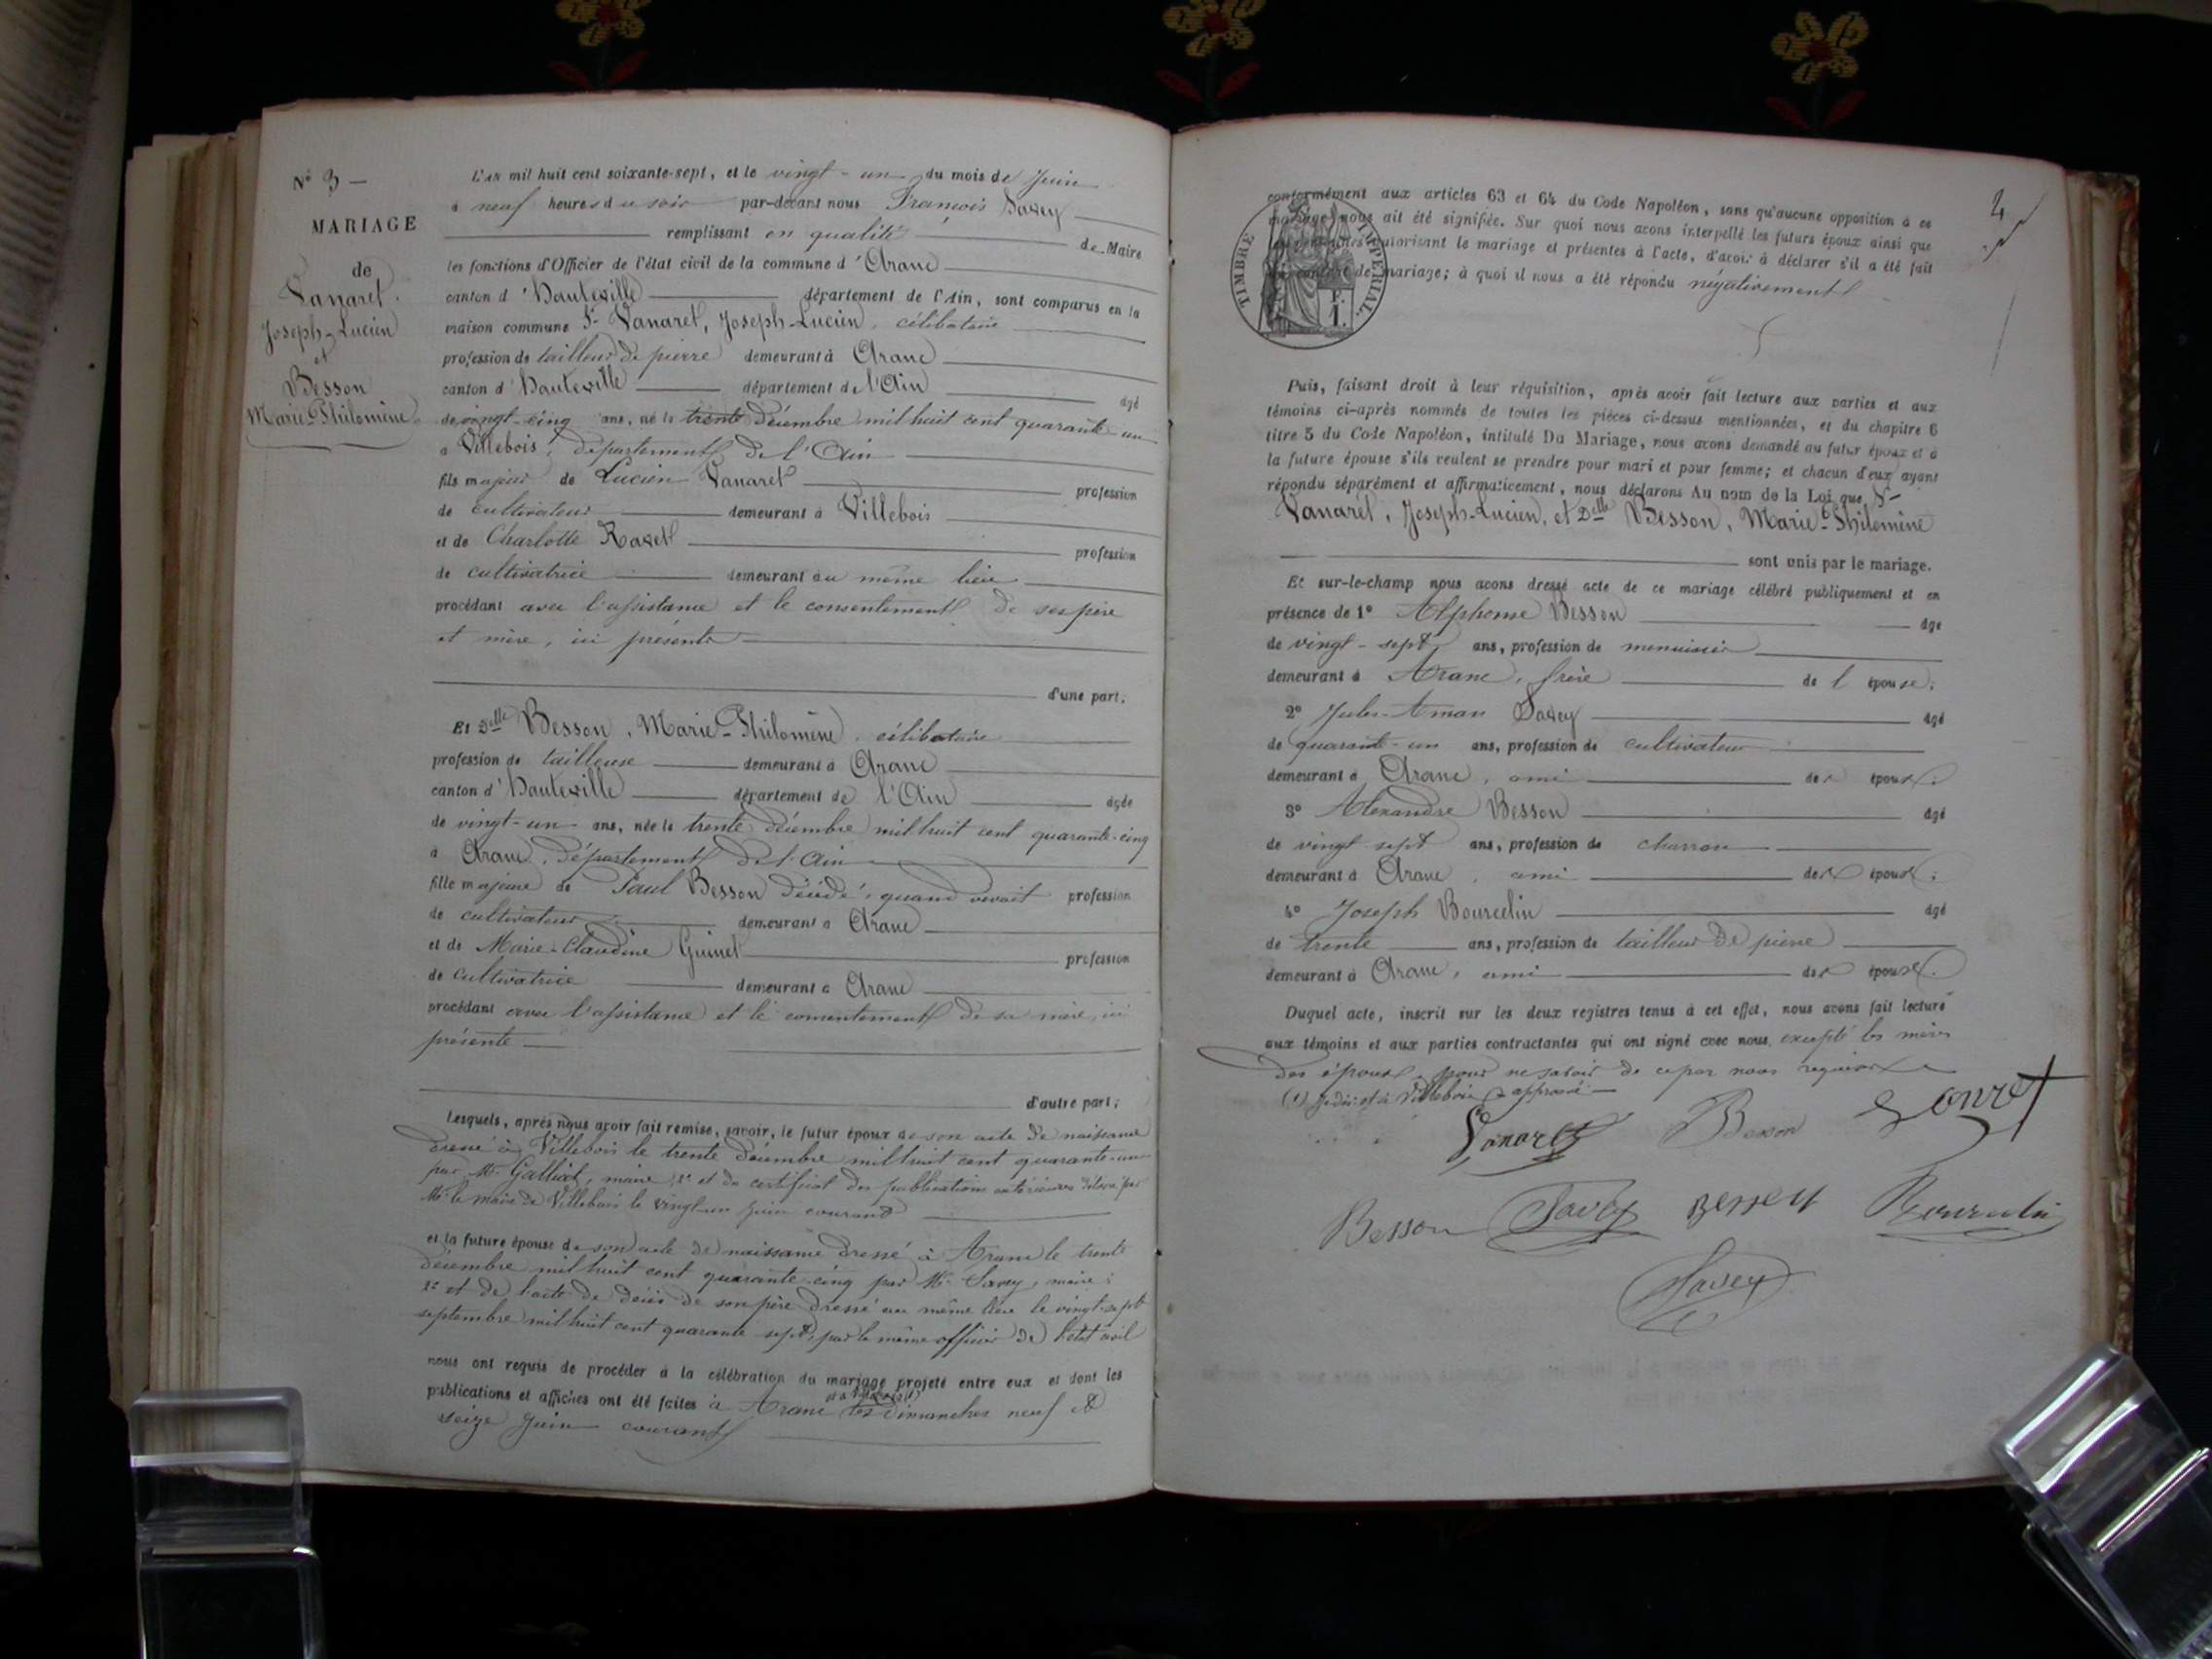 N° 3 —
MARIAGE
de
Vanaret.
Joseph-Lucien
et
Besson
Marie-Philomène
L'AN mil huit cent soixante-sept, et le vingt-un du mois de Juin
à neuf heures du soir par-devant nous François Savey
remplissant en qualité de Maire
les fonctions d'Officier de l'état civil de la commune d'Aranc
canton d'Hauteville département de l'Ain, sont comparus en la
maison commune Sr Vanaret, Joseph-Lucien, célibataire
profession de tailleur de pierre demeurant à Aranc
canton d'Hauteville département de l'Ain âgé
de vingt-cinq ans, né le trente Décembre mil huit cent quarante-un
à Villebois, département de l'Ain
fils majeur de Lucien Vanaret profession
de cultivateur demeurant à Villebois
et de Charlotte Ravet profession
de cultivatrice demeurant au même lieu
procédant avec l'assistance et le consentement de ses père
et mère, ici présents
d'une part;
Et Delle Besson, Marie-Philomène, célibataire
profession de tailleuse demeurant à Aranc
canton d'Hauteville département de l'Ain âgée
de vingt-un ans, née le trente Décembre mil huit cent quarante-cinq
à Aranc, département de l'Ain
fille majeure de Paul Besson décédé, quand vivait profession
de cultivateur demeurant à Aranc
et de Marie-Claudine Guinet profession
de cultivatrice demeurant à Aranc
procédant avec l'assistance et le consentement de sa mère, ici
présente
d'autre part;
Lesquels, après nous avoir fait remise, savoir, le futur époux de son acte de naissance
dressé à Villebois le trente décembre mil huit cent quarante-un
par Mr Galliat, maire, 2° et du certificat des publications antérieures délivré par
Mr le maire de Villebois le vingt-un juin courant
et la future épouse de son acte de naissance dressé à Aranc le trente
décembre mil huit cent quarante-cinq par Mr Savey, maire;
2° et de l'acte de décès de son père dressé au même lieu le vingt-sept
septembre mil huit cent quarante sept, par le même officier de l'état civil
nous ont requis de procéder à la célébration du mariage projeté entre eux et dont les
et à Villebois (1)
publications et affiches ont été faites à Aranc les dimanches neuf et
seize Juin courant
2
TIMBRE IMPÉRIAL.
F.
1.
conformément aux articles 63 et 64 du Code Napoléon, sans qu'aucune opposition à ce
mariage nous ait été signifiée. Sur quoi nous avons interpellé les futurs époux ainsi que
les personnes autorisant le mariage et présentes à l'acte, d'avoir à déclarer s'il a été fait
un contrat de mariage; à quoi il nous a été répondu négativement
Puis, faisant droit à leur réquisition, après avoir fait lecture aux parties et aux
témoins ci-après nommés de toutes les pièces ci-dessus mentionnées, et du chapitre 6
titre 5 du Code Napoléon, intitulé Du Mariage, nous avons demandé au futur époux et à
la future épouse s'ils veulent se prendre pour mari et pour femme; et chacun d'eux ayant
répondu séparément et affirmativement, nous déclarons Au nom de la Loi que Sr
Vanaret, Joseph-Lucien, et Delle Besson, Marie-Philomène
sont unis par le mariage.
Et sur-le-champ nous avons dressé acte de ce mariage célébré publiquement et en
présence de 1° Alphonse Besson âgé
de vingt-sept ans, profession de menuisier
demeurant à Aranc, frère de l'épouse;
2° Jules-Aman Savey âgé
de quarante-un ans, profession de cultivateur
demeurant à Aranc, ami des époux.
3° Alexandre Besson âgé
de vingt sept ans, profession de charron
demeurant à Aranc, ami des époux;
4° Joseph Bourcelin âgé
de trente ans, profession de tailleur de pierre
demeurant à Aranc, ami des époux.
Duquel acte, inscrit sur les deux registres tenus à cet effet, nous avons fait lecture
aux témoins et aux parties contractantes qui ont signé avec nous, excepté les mères
des époux, pour ne savoir de ce par nous requises
(1) Je dis: et à Villebois approuvé
Vanaret Besson
Besson Savey Bourcelin
Savey